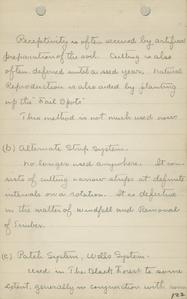 Receptivity is often secured by artificial
preparation of the soil. Culling is also
often deferred until a seed year. Natural
Reproduction is also aided by planting
up the "Fail Spots"
This method is not much used now.
(b) Alternate Strip System.
No longer used anywhere. It con-
sists of culling narrow strips at definite
intervals on a rotation. It is defective
in the matter of windfall and Removal
of timber.
(c) Patch System, Wells System.
Used in The Black Forest to some
extent, generally in conjunction with